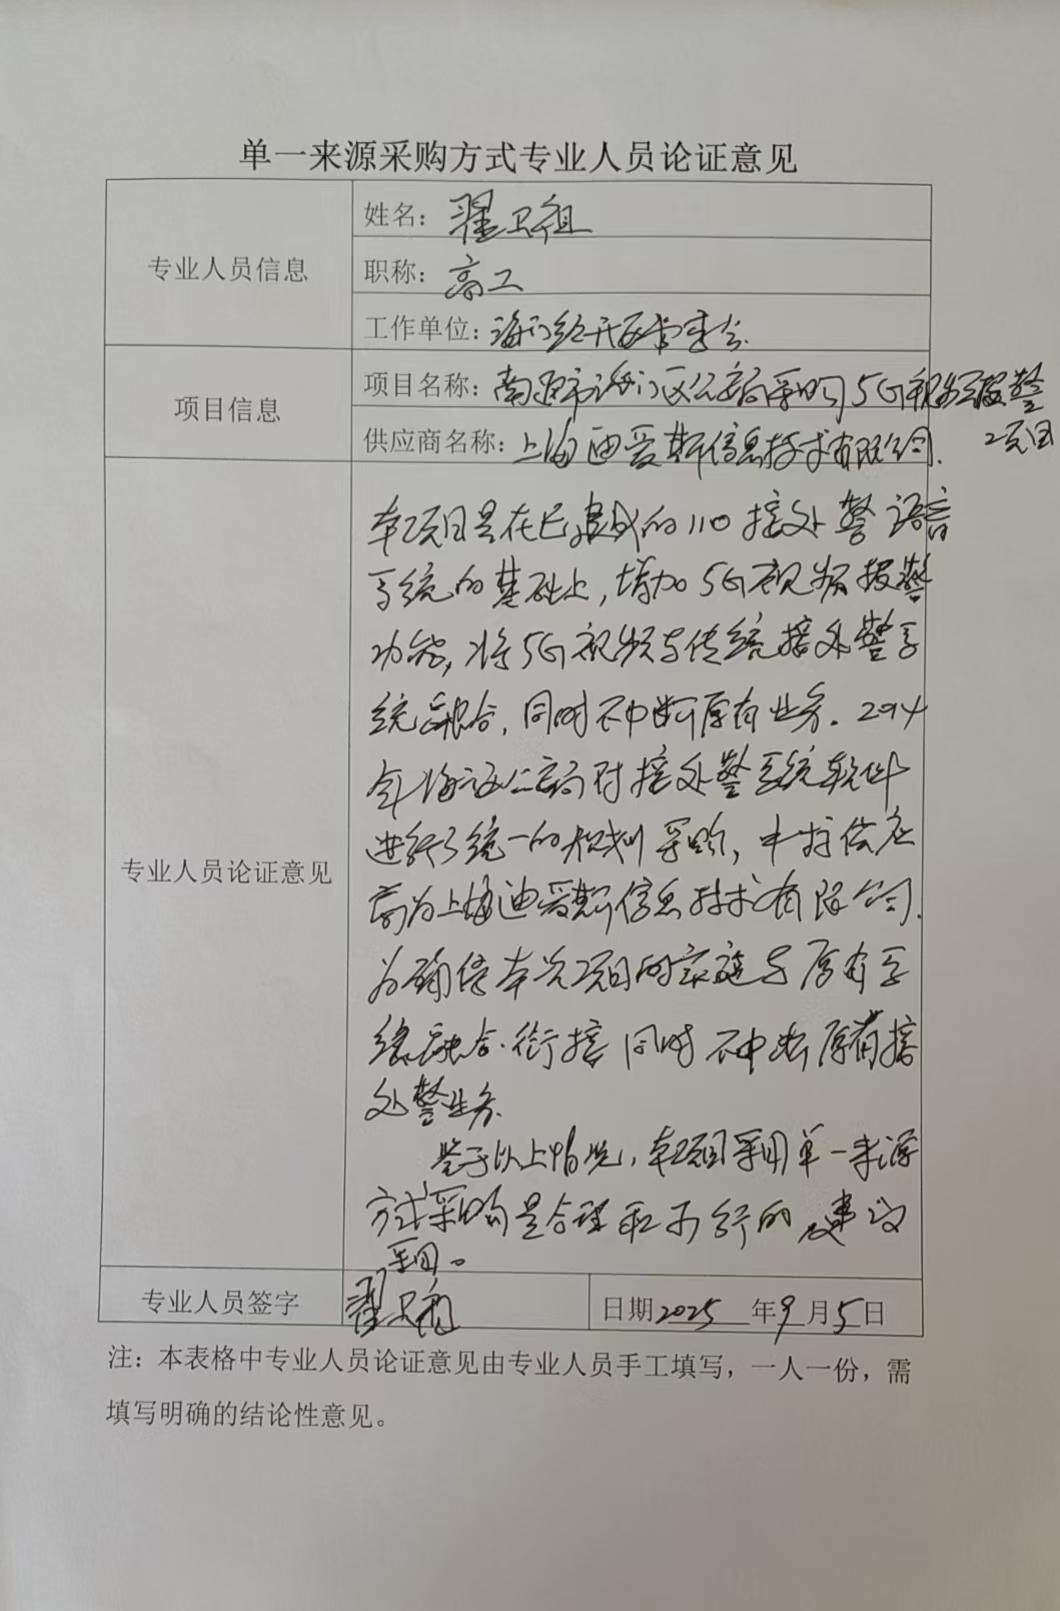 单一来源采购方式专业人员论证意见
专业人员信息
姓名：翟卫祖
职称：高工
工作单位：海门经开区管委会
项目信息
项目名称：南通市海门区公安局采购5G视频报警
项目
供应商名称：上海迪爱斯信息技术有限公司.
专业人员论证意见
本项目是在已建成的110接处警语言
系统的基础上，增加5G视频报警
功能，将5G视频与传统接处警系
统融合，同时不中断原有业务。2014
年海门公安局对接处警系统软件
进行了统一的规划采购，中标供应
商为上海迪爱斯信息技术有限公司.
为确保本次项目的实施与原有系
统融合.衔接同时不中断原有接
处警业务.
鉴于以上情况，本项目采用单一来源
方式采购是合理和可行的建议
采用。
专业人员签字
翟卫祖
日期2025年9月5日
注：本表格中专业人员论证意见由专业人员手工填写，一人一份，需
填写明确的结论性意见。